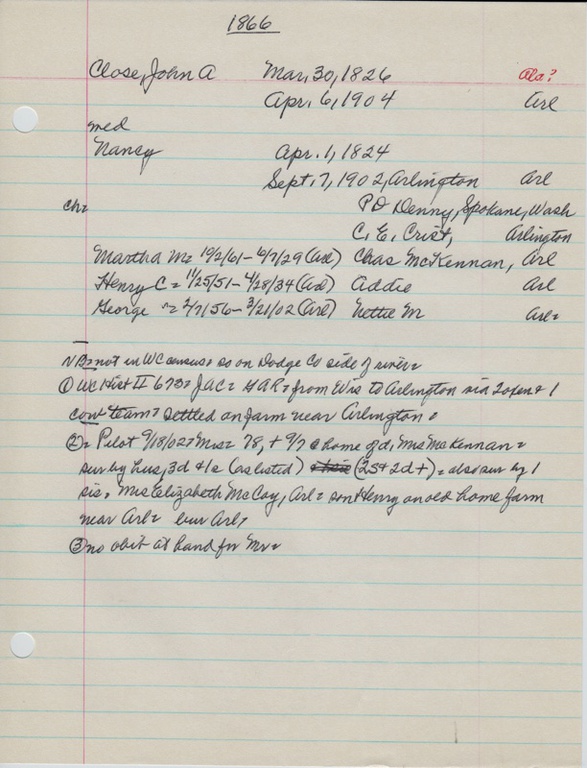 1866
Close, John A Mar. 30, 1826 Ala?
Apr. 6, 1904 Arl
med
Nancy Apr. 1, 1824
Sept. 7, 1902, Arlington Arl
ch=
PD Denny, Spokane, Wash
C. E. Crist, Arlington
Martha M= 10/2/61 - 6/7/29 (Arl) Chas McKennan, Arl
Henry C= 11/25/51 - 4/28/34 (Arl) Addie Arl
George = 2/7/56 - 3/21/02 (Arl) Nettie M Arl=
NB= not in WC census= so on Dodge Co side of river=
① WC Hist II 673= JAC= GAR= from Wis to Arlington via 2 oxen & 1
cow team= settled on farm near Arlington =
②= Pilot 9/18/02= Mrs= 78, + 9/7 @ home of d, Mrs McKennan=
sur by hus, 3d & 1s (as listed) (2s & 2d +)= also sur by 1
sis, Mrs Elizabeth McCoy, Arl= son Henry on old home farm
near Arl= bur Arl,
③ no obit at hand for Mr=